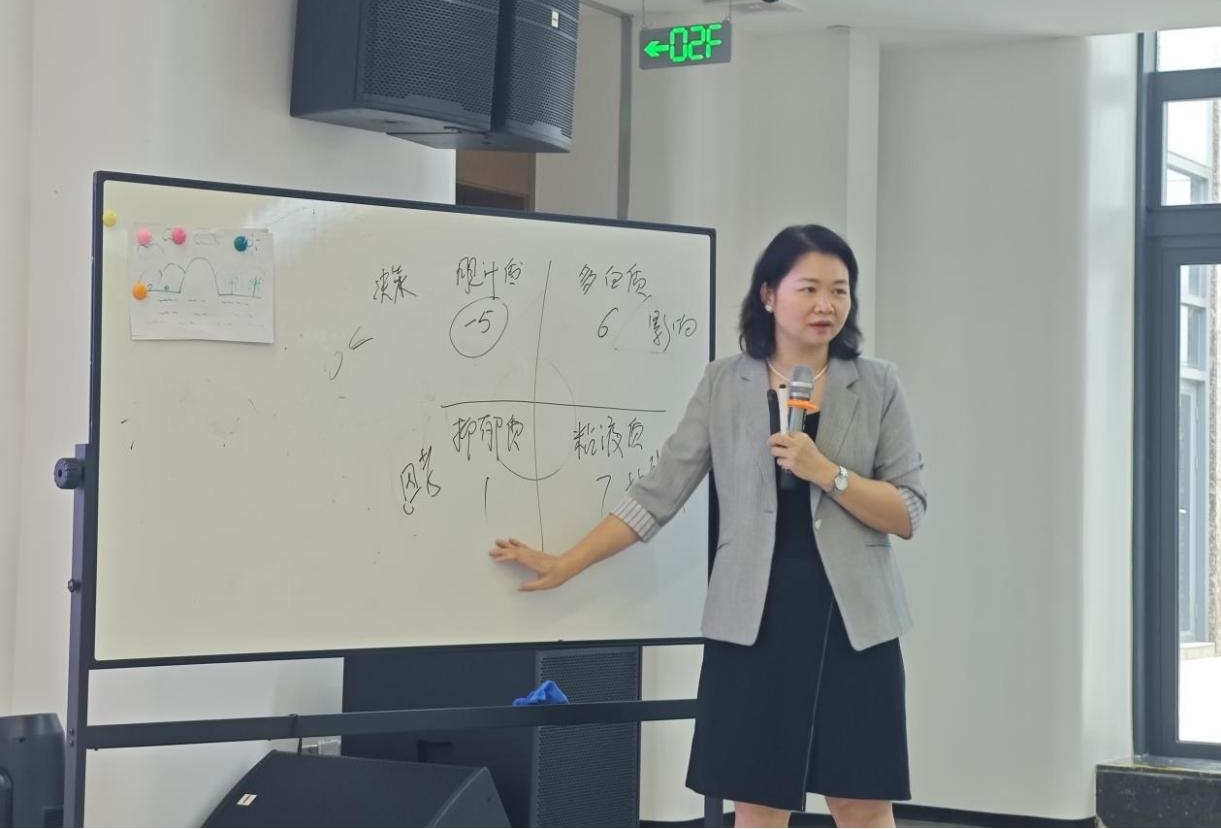 ←02F
决策 胆汁质 多血质
-5 6 影响
抑郁质 粘液质
思考 1 7